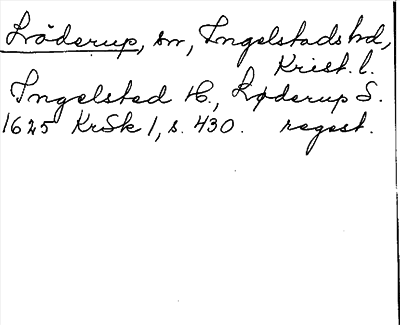 Löderup, sn, Ingelstads hd,
Krist. l.
Ingelsted H., Løderup S.
1625 KrSk 1, s. 430. regest.